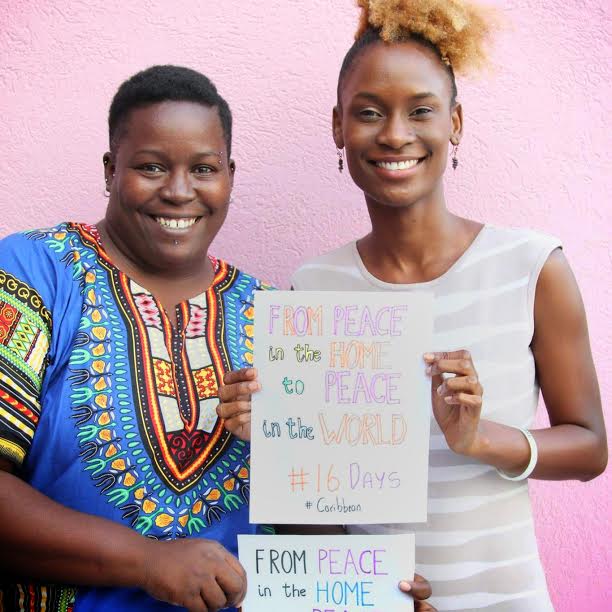 FROM PEACE
in the HOME
to PEACE
in the WORLD
#16 DAYS
# Caribbean
FROM PEACE
in the HOME